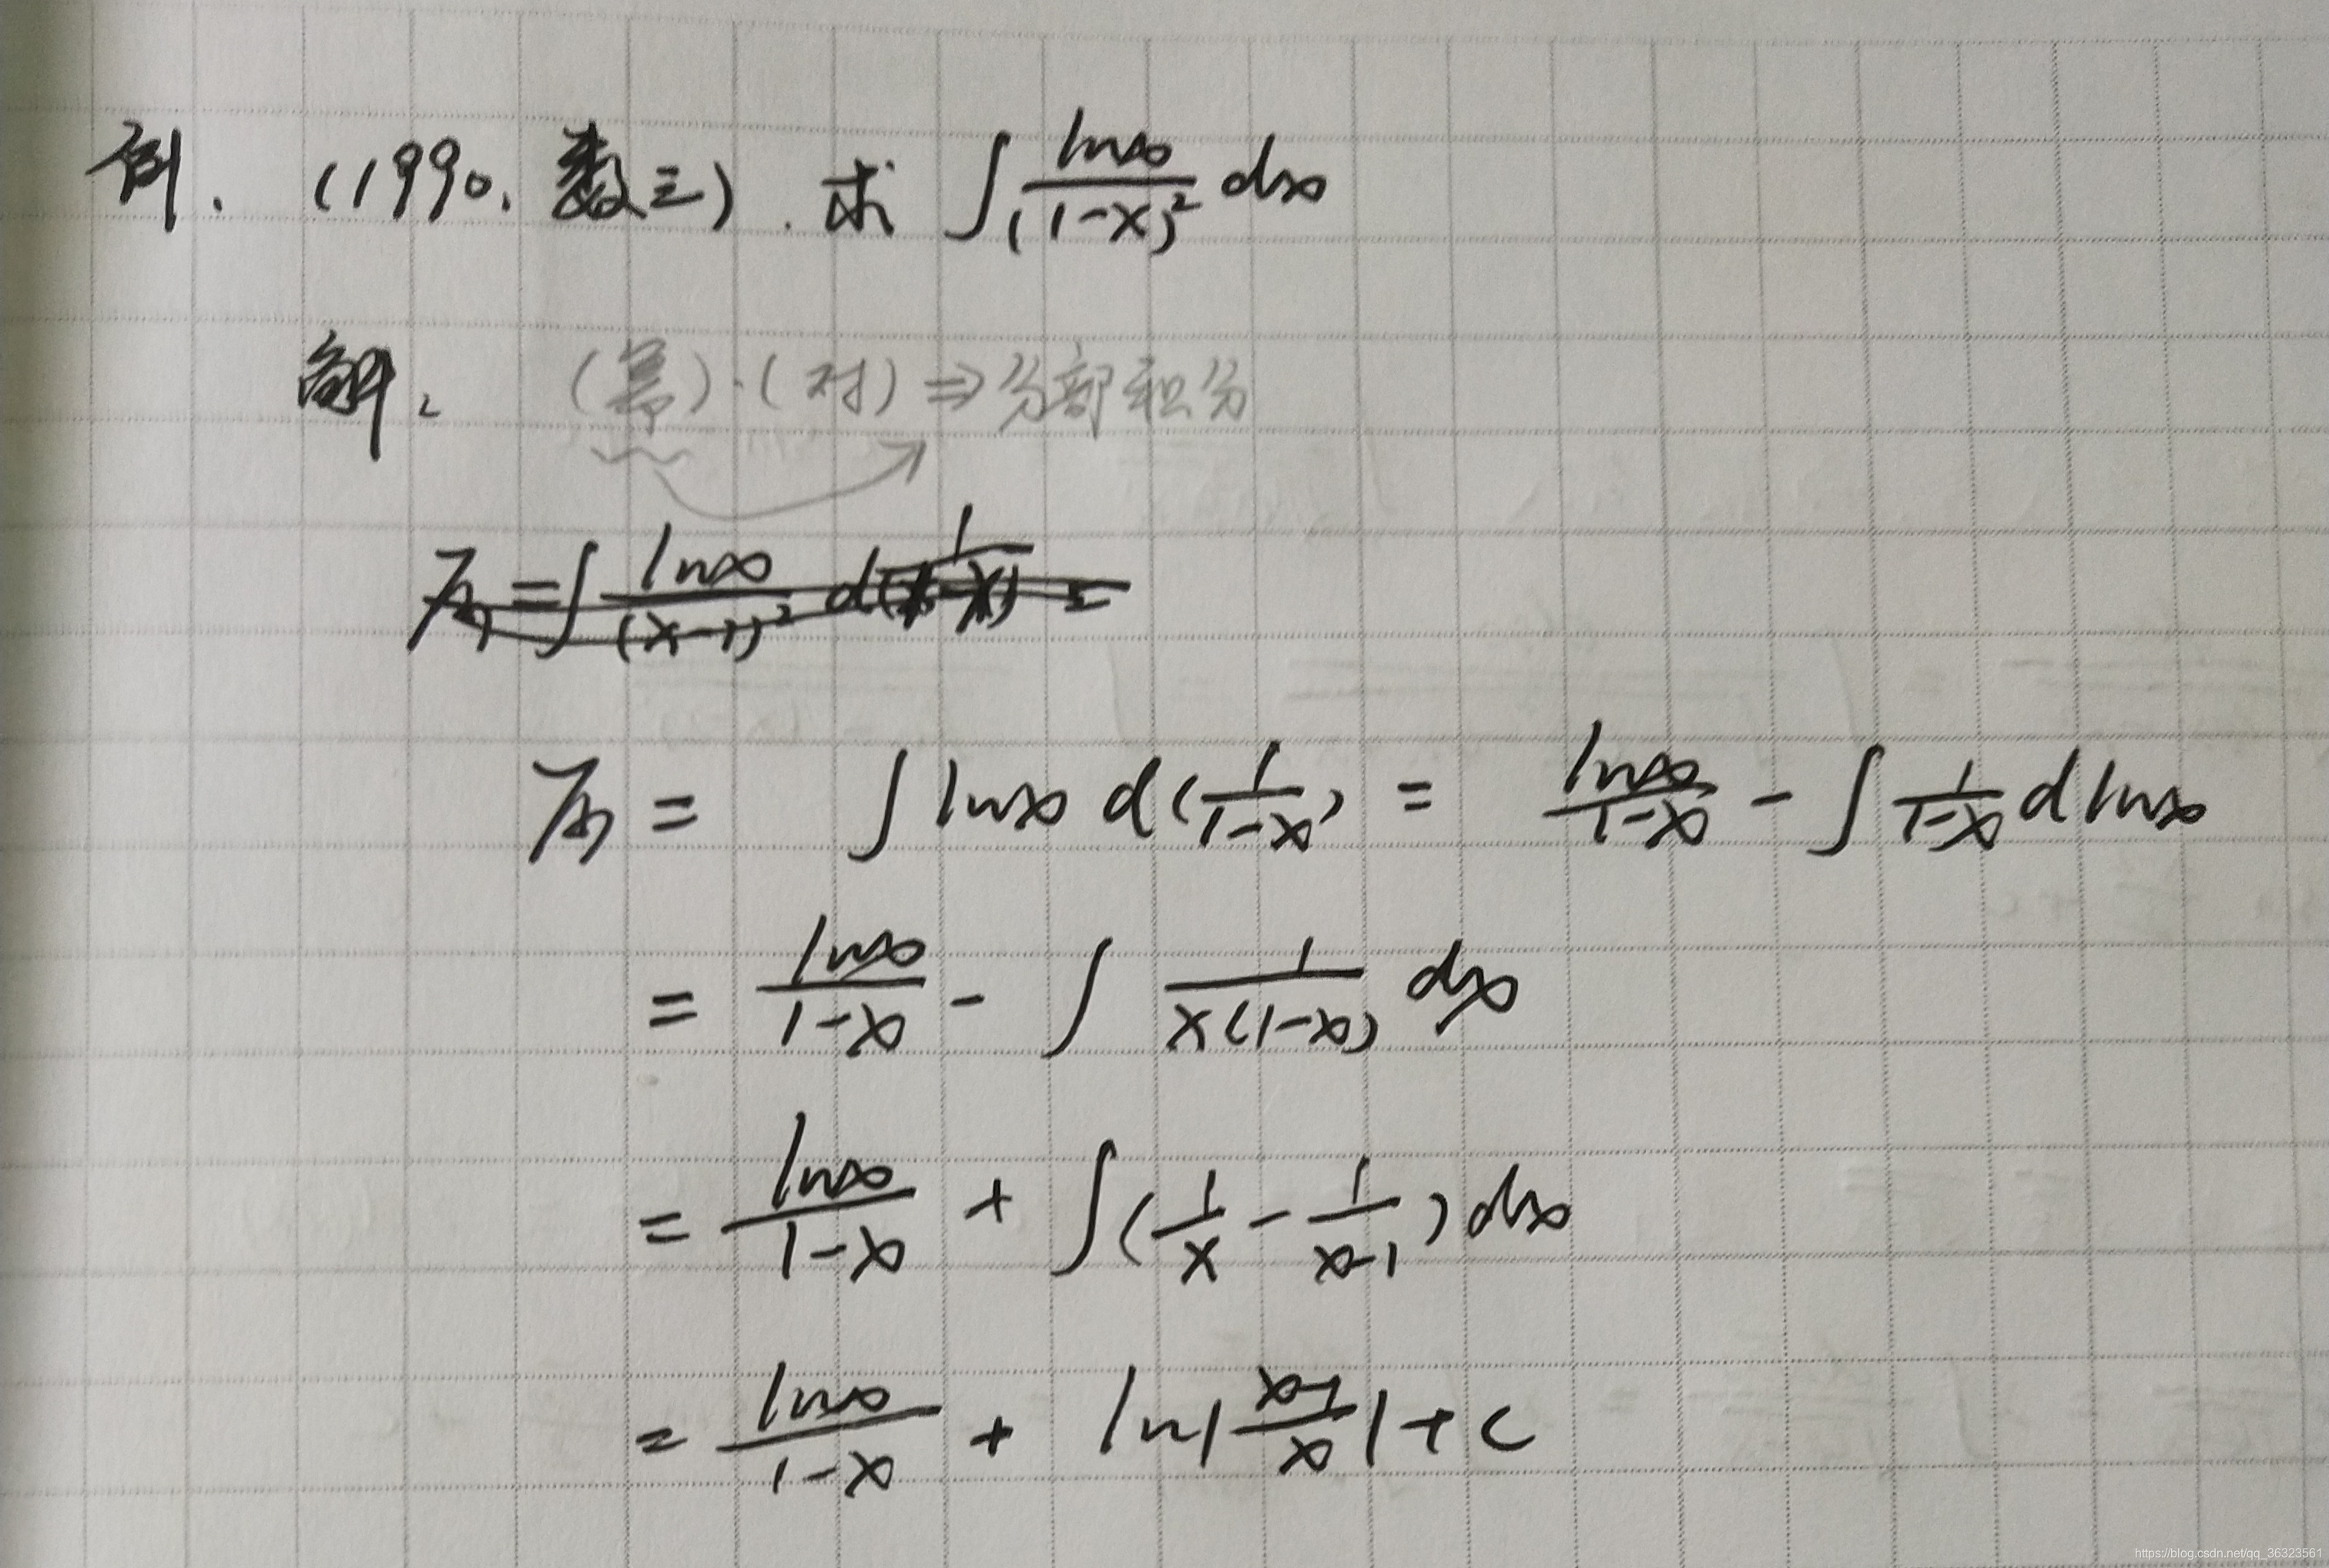 例. (1990. 数三). 求 ∫ lnx/(1-x)² dx
解. (幂)·(对) ⇒ 分部积分
原 = ∫ lnx/(x-1)² d(1/(1-x)) =
原 = ∫ lnx d(1/(1-x)) = lnx/(1-x) - ∫ 1/(1-x) d lnx
= lnx/(1-x) - ∫ 1/(x(1-x)) dx
= lnx/(1-x) + ∫ (1/x - 1/(x-1)) dx
= lnx/(1-x) + ln|(x-1)/x| + C
https://blog.csdn.net/qq_36323561